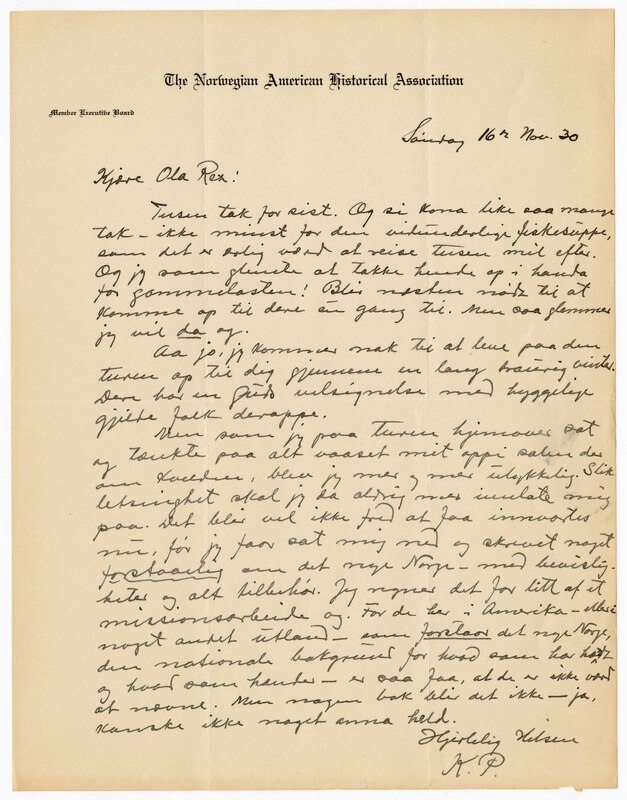 The Norwegian American Historical Association
Member Executive Board
Søndag 16de Nov. 30
Kjære Ola Rex!
Tusen tak for sist. Og si kona like saa mange
tak – ikke minst for den vidunderlige fiskesuppe,
som det er ærlig værd at reise tusen mil efter.
Og jeg som glemte at takke hende op i handa
for gammelosten! Blir næsten nødt til at
komme op til dere èn gang til. Men saa glemmer
jeg vel da og.
Aa jo, jeg kommer nok til at leve paa den
turen op til dig gjennem en lang traurig vinter.
Dere har en Guds velsignelse med hyggelige
gjilde folk deroppe.
Men som jeg paa turen hjemover sat
og tænkte paa alt vaaset mit oppi salen der
om kvelden, blev jeg mer og mer ulykkelig. Slik
letsinghet skal jeg da aldrig mer indlate mig
paa. Det blir vel ikke fred at faa innvortes
nu, før jeg faar sat mig ned og skrevet noget
forstaaelig om det nye Norge – med bevislig-
heter og alt tilbehør. Jeg regner det for litt af et
missionsarbeide og. For de her i Amerika – eller i
noget andet utland – som forstaar det nye Norge,
den nationale bakgrund for hvad som har hændt
og hvad som hænder – er saa faa, at de er ikke værd
at nævne. Men nogen bok blir det ikke – ja,
kanske ikke noget anna held.
Hjertelig Hilsen
K. P.